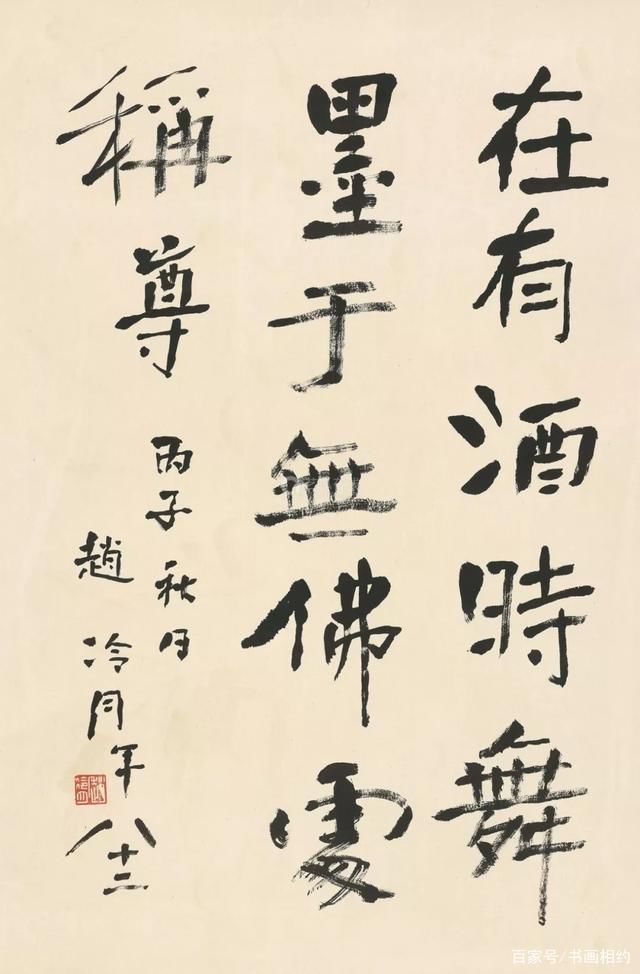 在有酒時舞
墨于無佛處
稱尊
丙子秋月
趙冷月年八十二
百家号/书画相约